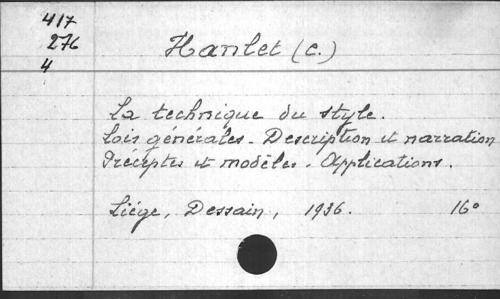 417
276
4
Hanlet (C.)
La technique du style.
Lois générales - Description et narration
Préceptes et modèles. Applications.
Liége, Dessain, 1936. 16°